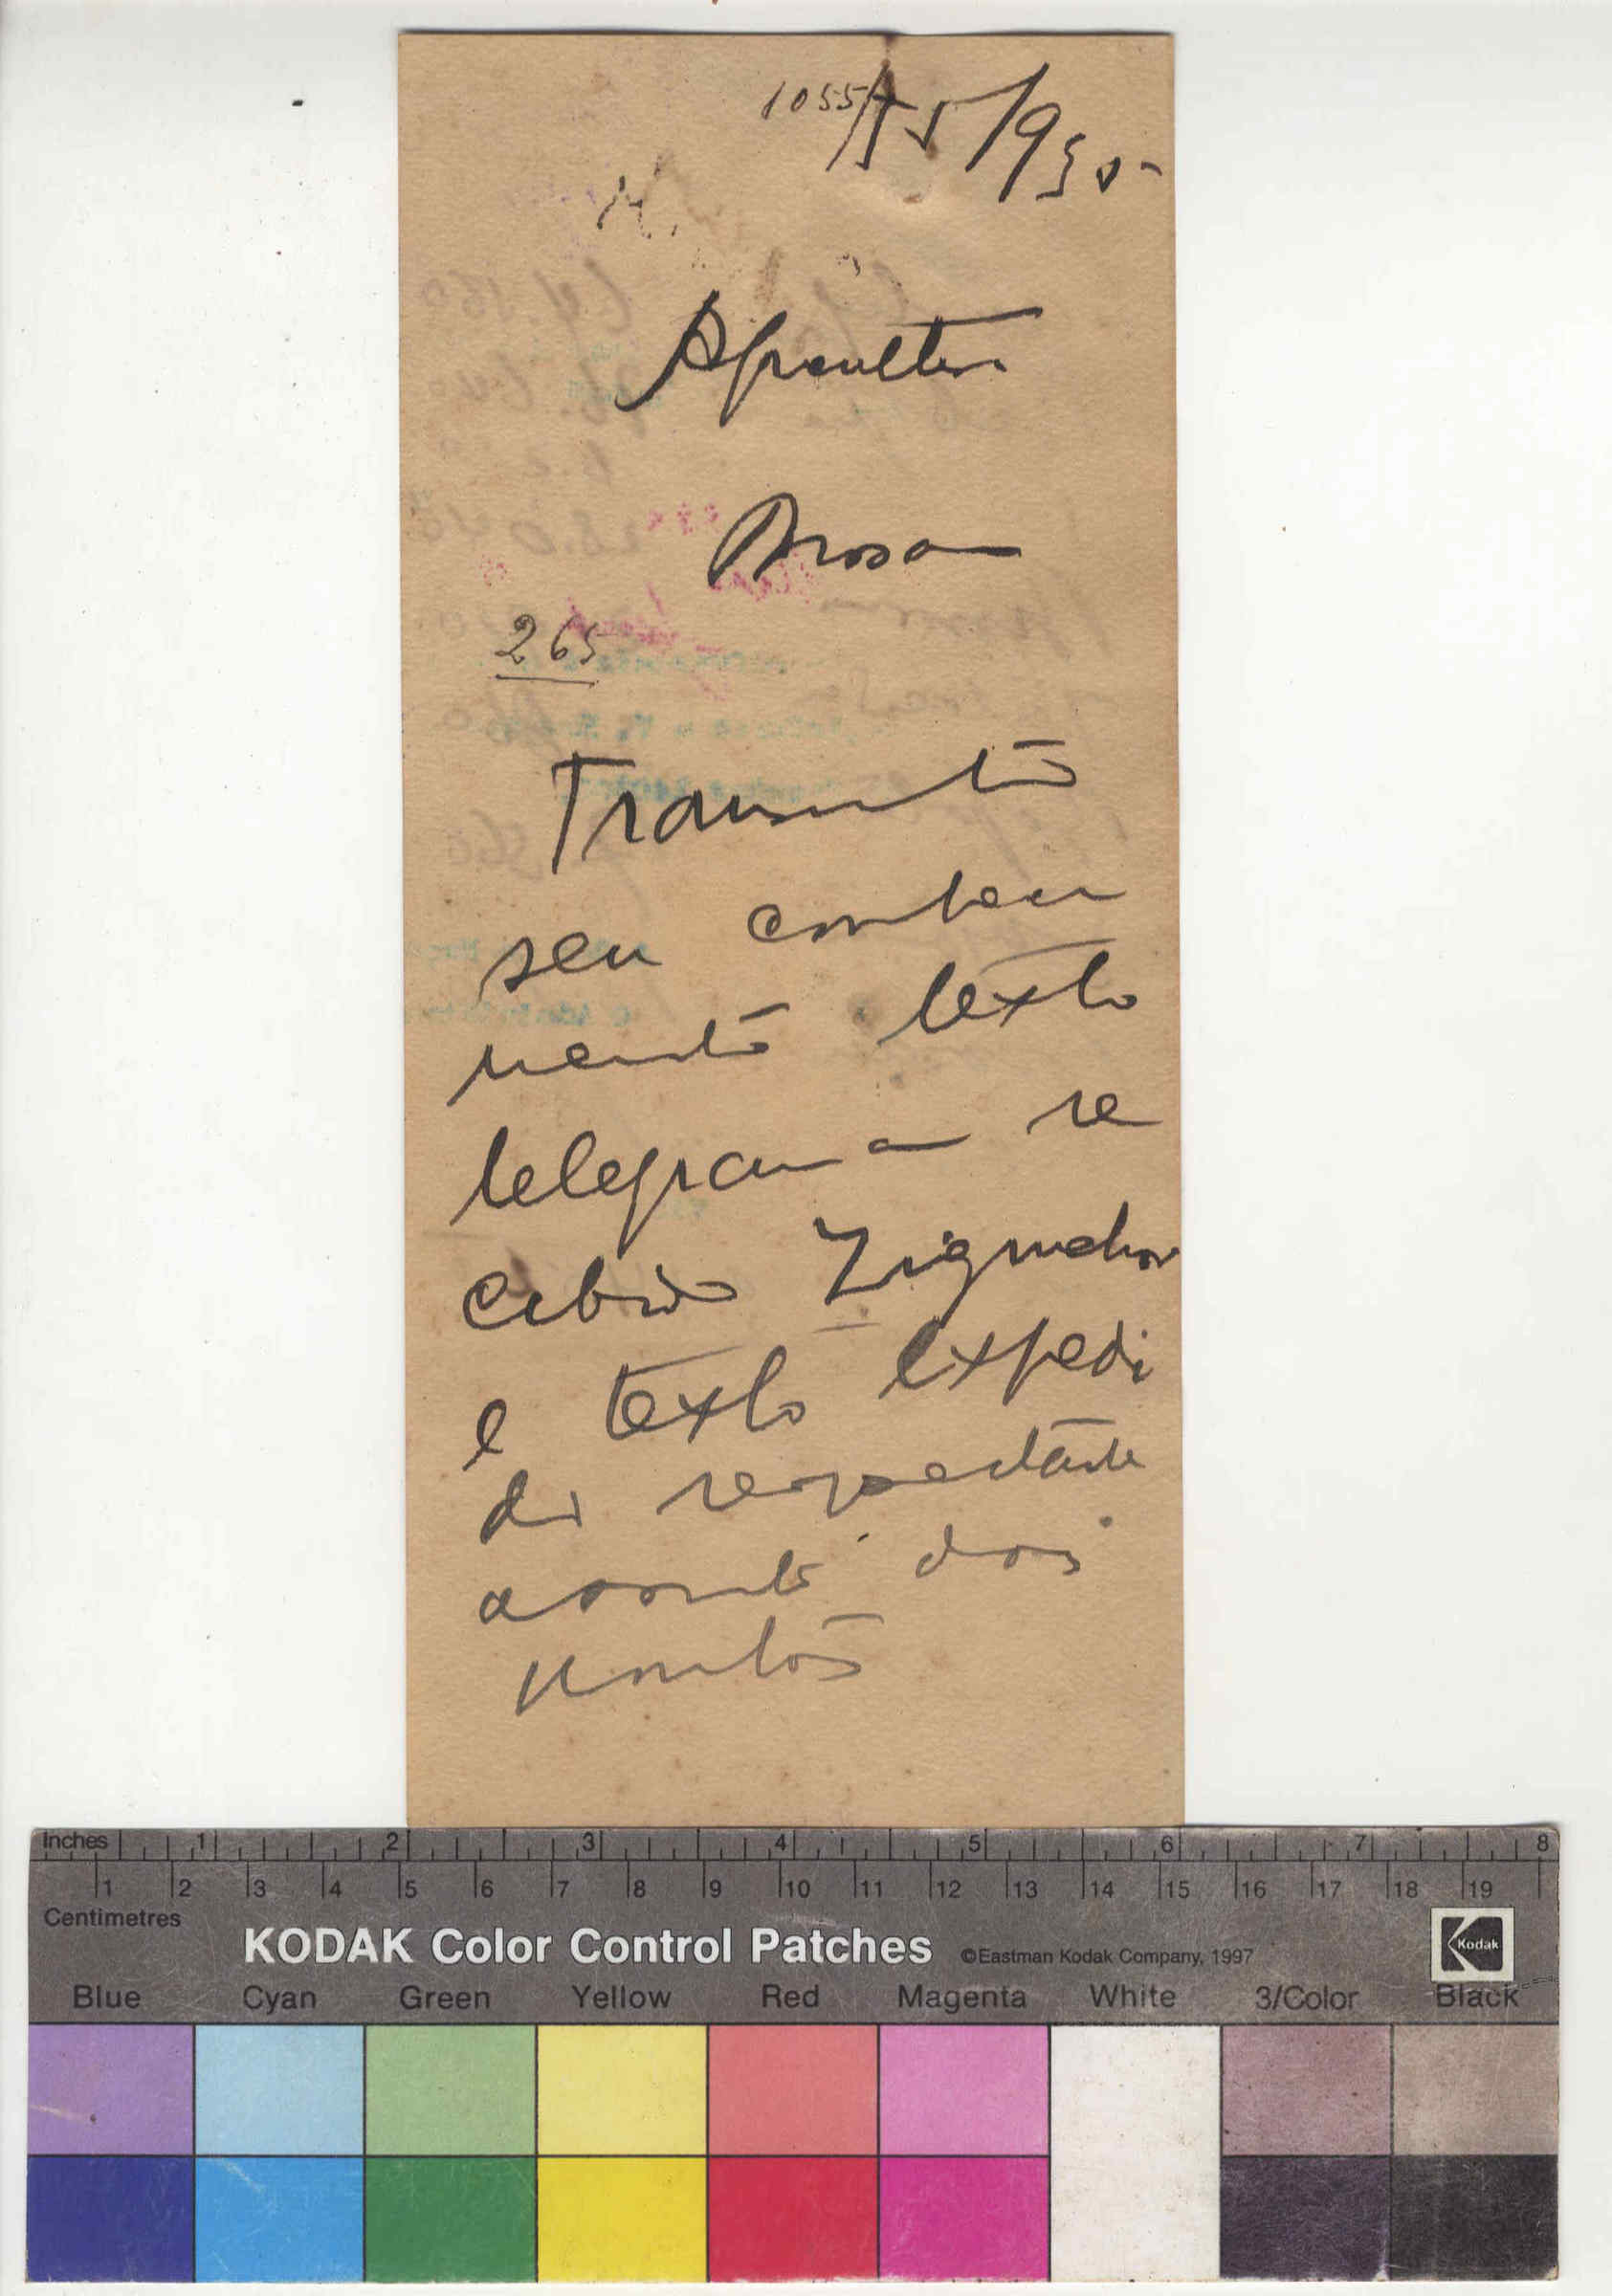 1055
15/9/35-
M.
Agricultura
Bissau
265
Transmito
seu conheci
mento texto
telegrama re
cebido Ziguichor
e texto expedi
do respeitante
assunto dois
pontos
Inches 1 2 3 4 5 6 7 8
1 2 3 4 5 6 7 8 9 10 11 12 13 14 15 16 17 18 19
Centimetres
KODAK Color Control Patches ©Eastman Kodak Company, 1997 Kodak
Blue Cyan Green Yellow Red Magenta White 3/Color Black